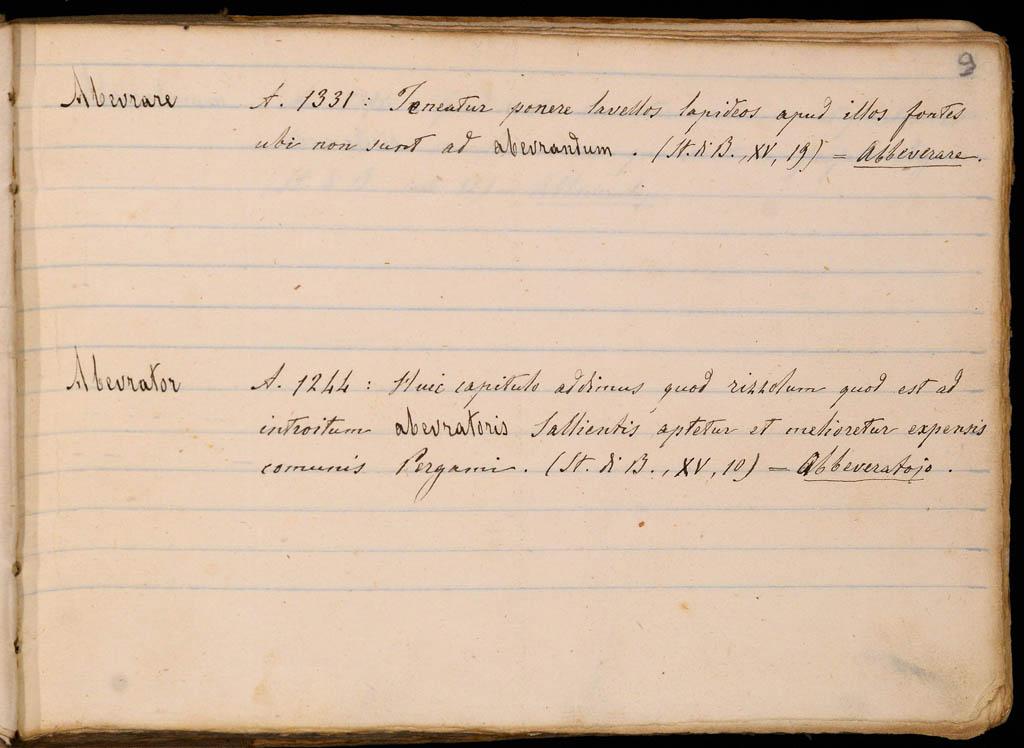 9
Abevrare A. 1331 : Teneatur ponere lavellos lapideos apud illos fontes
ubi non sunt ad abevrandum . (St. di B., XV, 19) = Abbeverare.
Abevrator A. 1244 : Huic capitulo addimus quod rizzolum quod est ad
introitum abevratoris Sallientis aptetur et melioretur expensis
comunis Pergami . (St. di B., XV, 10) = Abbeveratojo .